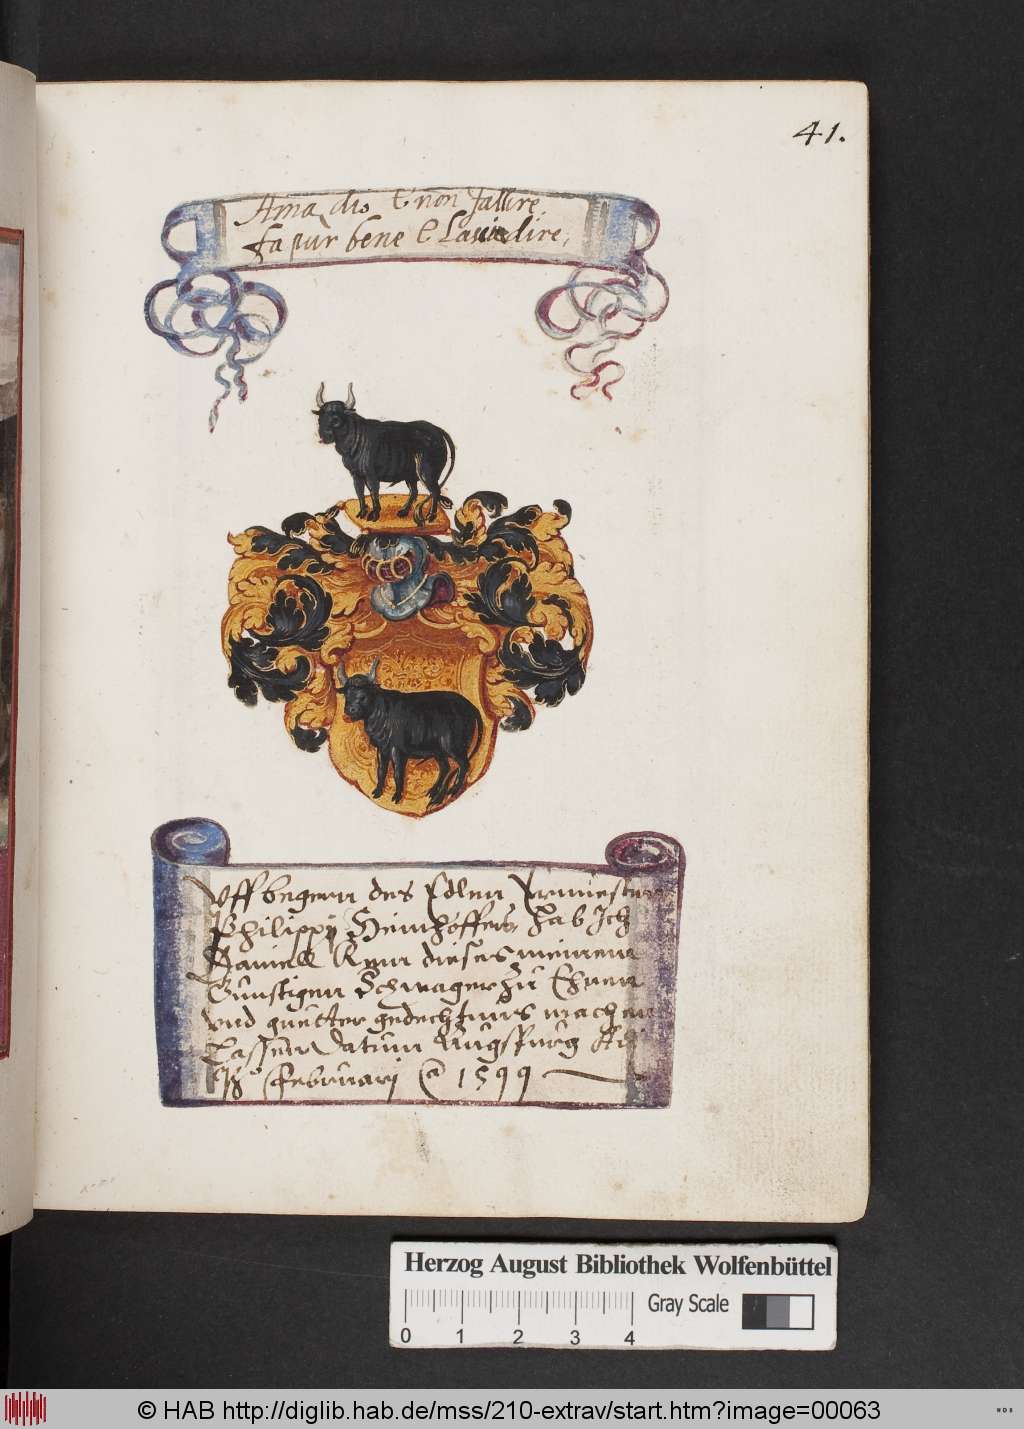 41.
Ama dio E non fallire,
fa pur bene E Lascia dire,
Uff begern des Edlen
Philippj Heinhoffers, hab Ich
Daniell dieses meinem
Günstigen Schwager zu Ehren
vnd guetter gedechtnus machen
Lassen Datum Augspurg
Februarj 1599
Herzog August Bibliothek Wolfenbüttel
Gray Scale
0 1 2 3 4
© HAB http://diglib.hab.de/mss/210-extrav/start.htm?image=00063